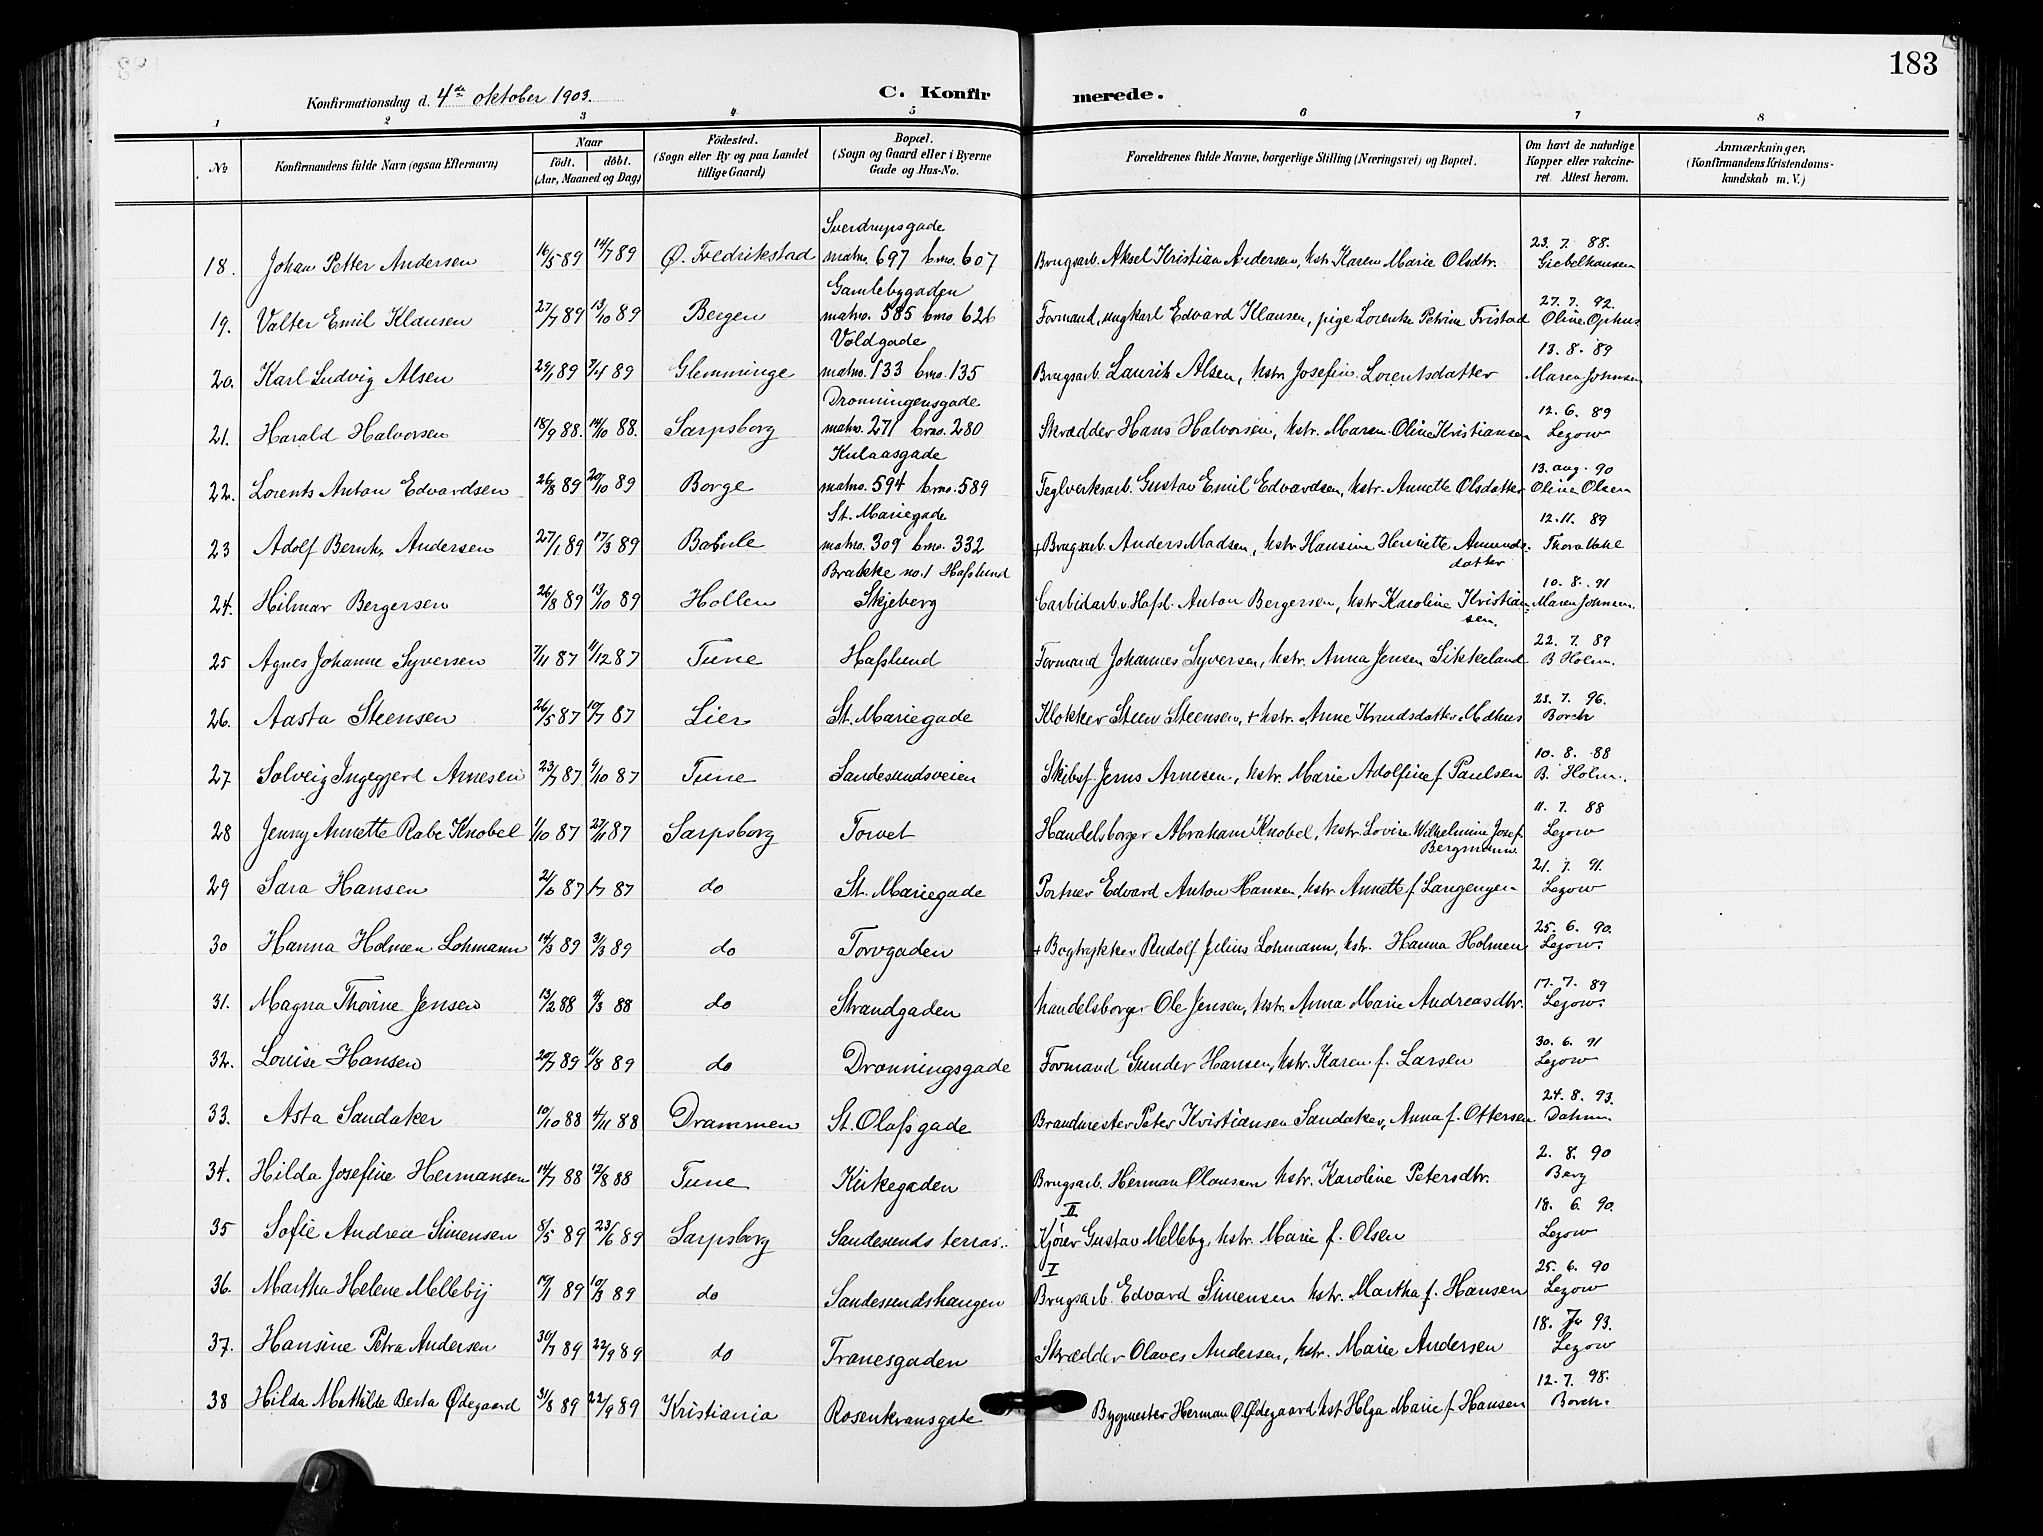 183
Konfirmationsdag d. 4de oktober 1903.
C. Konfirmerede.
1 2 3 4 5 6 7 8
No
Konfirmandens fulde Navn (ogsaa Efternavn)
Naar
født. døbt.
(Aar, Maaned og Dag)
Fødested.
(Sogn eller By og paa Landet
tillige Gaard)
Bopæl.
(Sogn og Gaard eller i Byerne
Gade og Hus-No.
Forældrenes fulde Navne, borgerlige Stilling (Næringsvei) og Bopæl.
Om havt de naturlige
Kopper eller vakcine-
ret. Attest herom.
Anmærkninger.
(Konfirmandens Kristendoms-
kundskab m. V.)
Sverdrupsgade 23. 7. 88.
18. Johan Petter Andersen 16/5 89 14/7 89 Ø. Fredrikstad matno. 697 brno. 607 Brugsarb. Aksel Kristian Andersen, hstr. Karen Marie Olsdtr. Giebelhausen
Gamlebygaden 27. 7. 92.
19. Valter Emil Klausen 27/7 89 13/10 89 Bergen matno. 585 brno 626 Formand, ungkarl Edvard Klausen, pige Lorentse Petrine Fristad Oline Ophus
Voldgade 13. 8. 89
20. Karl Ludvig Alsen 29/1 89 7/4 89 Glemminge matno. 133 brno. 135 Brugsarb. Laurits Alsen, hstr Josefine Lorentsdatter Maren Johnsen
Dronningensgade 12. 6. 89
21. Harald Halvorsen 18/9 88. 14/10 88. Sarpsborg matno. 271 brno. 280 Skrædder Hans Halvorsen, hstr. Maren Oline Kristiansen Lezow
Kulaasgade 13. aug. 90
22. Lorents Anton Edvardsen 26/8 89 20/10 89 Borge matno. 594 brno. 589 Teglverksarb. Gustav Emil Edvardsen, hstr. Annette Olsdatter Oline Olsen
St. Mariegade 12. 11. 89
23 Adolf Bernh. Andersen 27/1 89 17/3 89 Bamle matno. 309 brno. 332 + Brugsarb. Anders Madsen, hstr Hansine Henriette Amunds- Thora
datter
Brakke no. 1 Hafslund 10. 8. 91
24. Hilmar Bergersen 26/8 89 13/10 89 Hollen Skjeberg Carbidarb. v. Hafsl. Anton Bergersen, hstr Karoline Kristian- Maren Johnsen.
sen.
22. 7. 89
25 Agnes Johanne Syversen 7/11 87 4/12 87 Tune Hafslund Formand Johannes Syversen, hstr. Anna Jensen Sikkeland B Holm.
23. 7. 96.
26. Aasta Steensen 26/5 87 10/7 87 Lier St. Mariegade Klokker Steen Steensen, + hstr. Anne Knudsdatter Modhus Borch
10. 8. 88
27 Solveig Ingegjerd Arnesen 23/7 87 9/10 87 Tune Sandesundsveien Skibsf. Jens Arnesen, hstr. Marie Adolfine f. Paulsen B. Holm.
11. 7. 88
28 Jenny Annette Rabe Knobel 1/10 87 27/11 87 Sarpsborg Torvet Handelsborger Abraham Knobel, hstr Lovise Wilhelmine Josef. Lezow
Bergmann.
21. 7. 91.
29 Sara Hansen 21/6 87 87 do St. Mariegade Portner Edvard Anton Hansen, hstr. Annette f. Langengen Lezow
25. 6. 90.
30 Hanna Holmen Lohmann 14/3 89 31/3 89 do Torvgaden + Bogtrykker Rudolf Julius Lohmann, hstr. Hanna Holmen Lezow.
17. 7. 89
31. Magna Thorine Jensen 13/2 88 11/3 88 do Strandgaden Handelsborger Ole Jensen, hstr. Anna Marie Andreasdtr. Lezow.
30. 6. 91
32. Louise Hansen 20/7 89 11/8 89 do Dronningsgade Formand Gunder Hansen, hstr. Karen f. Larsen Lezow
24. 8. 93.
33. Asta Sandaker 10/10 88 4/11 88 Drammen St. Olafsgade Brandmester Peter Kristiansen Sandaker, Anna f. Ottersen Dahm.
2. 8. 90
34. Hilda Josefine Hermansen 14/7 88 12/8 88 Tune Kirkegaden Brugsarb. Herman Olaussen hstr. Karoline Petersdtr. Berg
II 18. 6. 90.
35 Sofie Andrea Simensen 8/5 89 23/6 89 Sarpsborg Sandesunds terras. Kjører Gustav Melleby, hstr. Marie f. Olsen Lezow
I 25. 6. 90
36. Martha Helene Melleby 17/1 89 10/3 89 do Sandesundshaugen Brugsarb. Edvard Simensen hstr. Martha f. Hansen Lezow
18. 93.
37. Hansine Petra Andersen 30/7 89 22/9 89 do Tranesgaden Skrædder Olaves Andersen, hstr. Marie Andersen Lezow
12. 7. 98.
38 Hilda Mathilde Berta Ødegaard 31/8 89 22/9 89 Kristiania Rosenkransgade Bygmester Herman O. Ødegaard hst Helga Marie f. Hansen Borch.